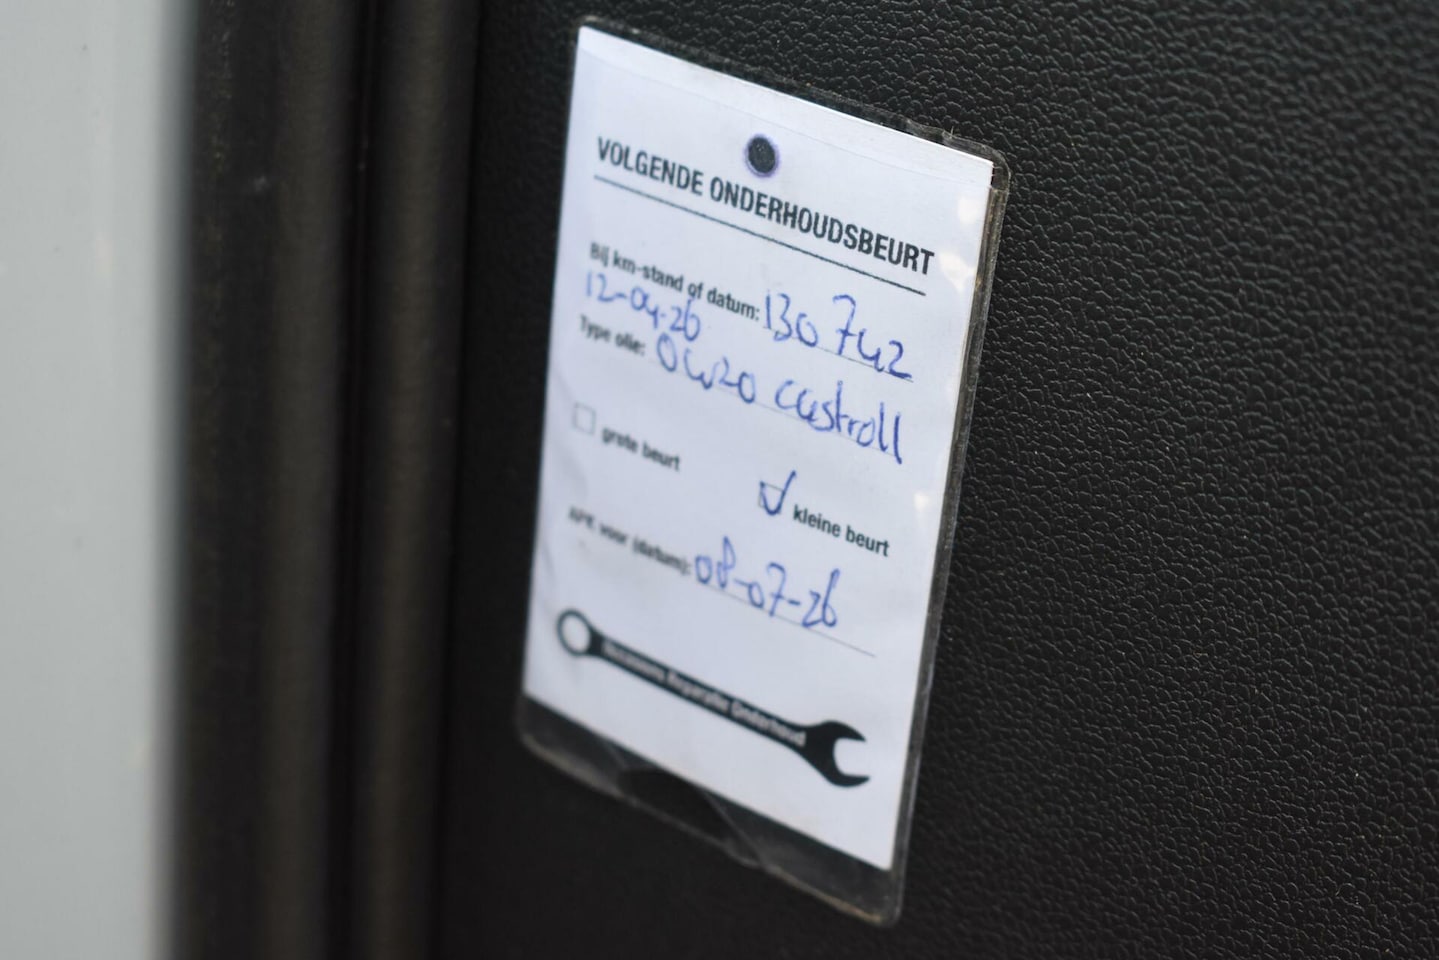 VOLGENDE ONDERHOUDSBEURT
Bij km-stand of datum: 130 742
12-04-26
Type olie: 0W20 castroll
grote beurt
kleine beurt
APK voor (datum): 08-07-26
Occasions Reparatie Onderhoud